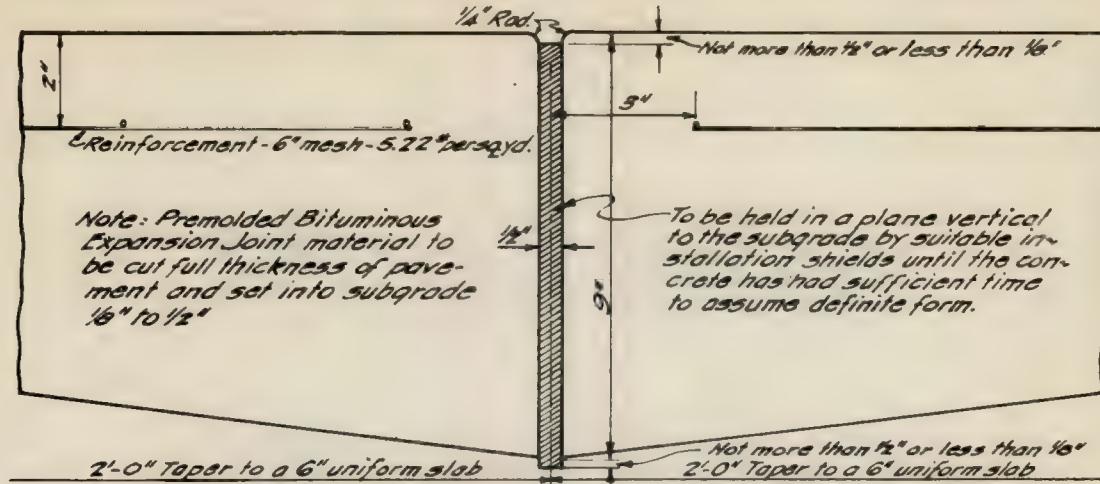 1/4" Rad.
Not more than 1/2" or less than 1/8"
2"
3"
Reinforcement - 6" mesh - 5.22# per sq.yd.
Note: Premolded Bituminous
Expansion Joint material to
be cut full thickness of pave-
ment and set into subgrade
1/8" to 1/2"
1/2"
9"
To be held in a plane vertical
to the subgrade by suitable in-
stallation shields until the con-
crete has had sufficient time
to assume definite form.
Not more than 1/2" or less than 1/8"
2'-0" Taper to a 6" uniform slab
2'-0" Taper to a 6" uniform slab